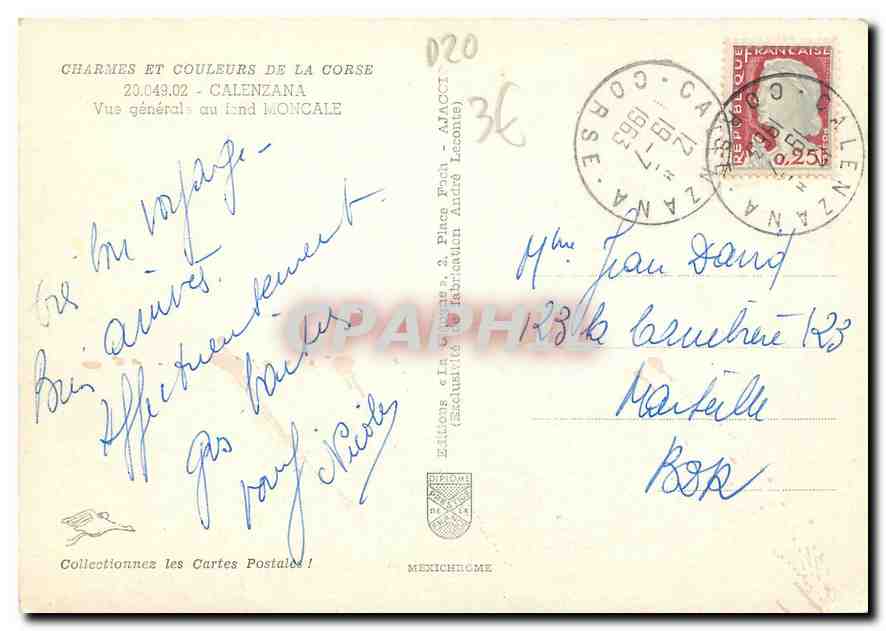 D20
3€
CHARMES ET COULEURS DE LA CORSE
20.049.02 - CALENZANA
Vue générale au fond MONCALE
REPUBLIQUE FRANCAISE
0,25F
CALENZANA
CORSE
12 H
19-7
1963
très bon voyage -
Bien arrivés.
Affectueusement.
Gros baisers
Nicole
Editions «La Cigogne», 2, Place Foch - AJACCI
(Exclusivité de fabrication André Leconte)
Mme Jean David
123 la Canebière 123
Marseille
BDR
CPAPHIL
DIPLOME
PRESTIGE
DE LA
FRANCE
Collectionnez les Cartes Postales !
MEXICHROME